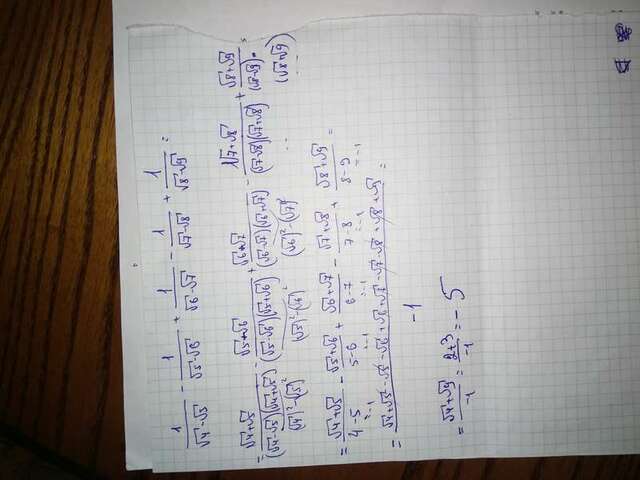 1/(√4-√5) - 1/(√5-√6) + 1/(√6-√7) - 1/(√7-√8) + 1/(√8-√9) =
= (√4+√5)/((√4-√5)(√4+√5)) - (√5+√6)/((√5-√6)(√5+√6)) + (√6+√7)/((√6-√7)(√6+√7)) - (√7+√8)/((√7-√8)(√7+√8)) + (√8+√9)/((√8-√9)· (√8+√9)) =
(√4)²-(√5)² (√5)²-(√6)² (√6)²-(√7)²
= (√4+√5)/(4-5) - (√5+√6)/(5-6) + (√6+√7)/(6-7) - (√7+√8)/(7-8) + (√8+√9)/(8-9) =
=-1 =-1 =-1 =-1 =-1
= (√4+√5-√5-√6+√6+√7-√7-√8+√8+√9)/(-1) =
= (√4+√9)/-1 = (2+3)/-1 = -5